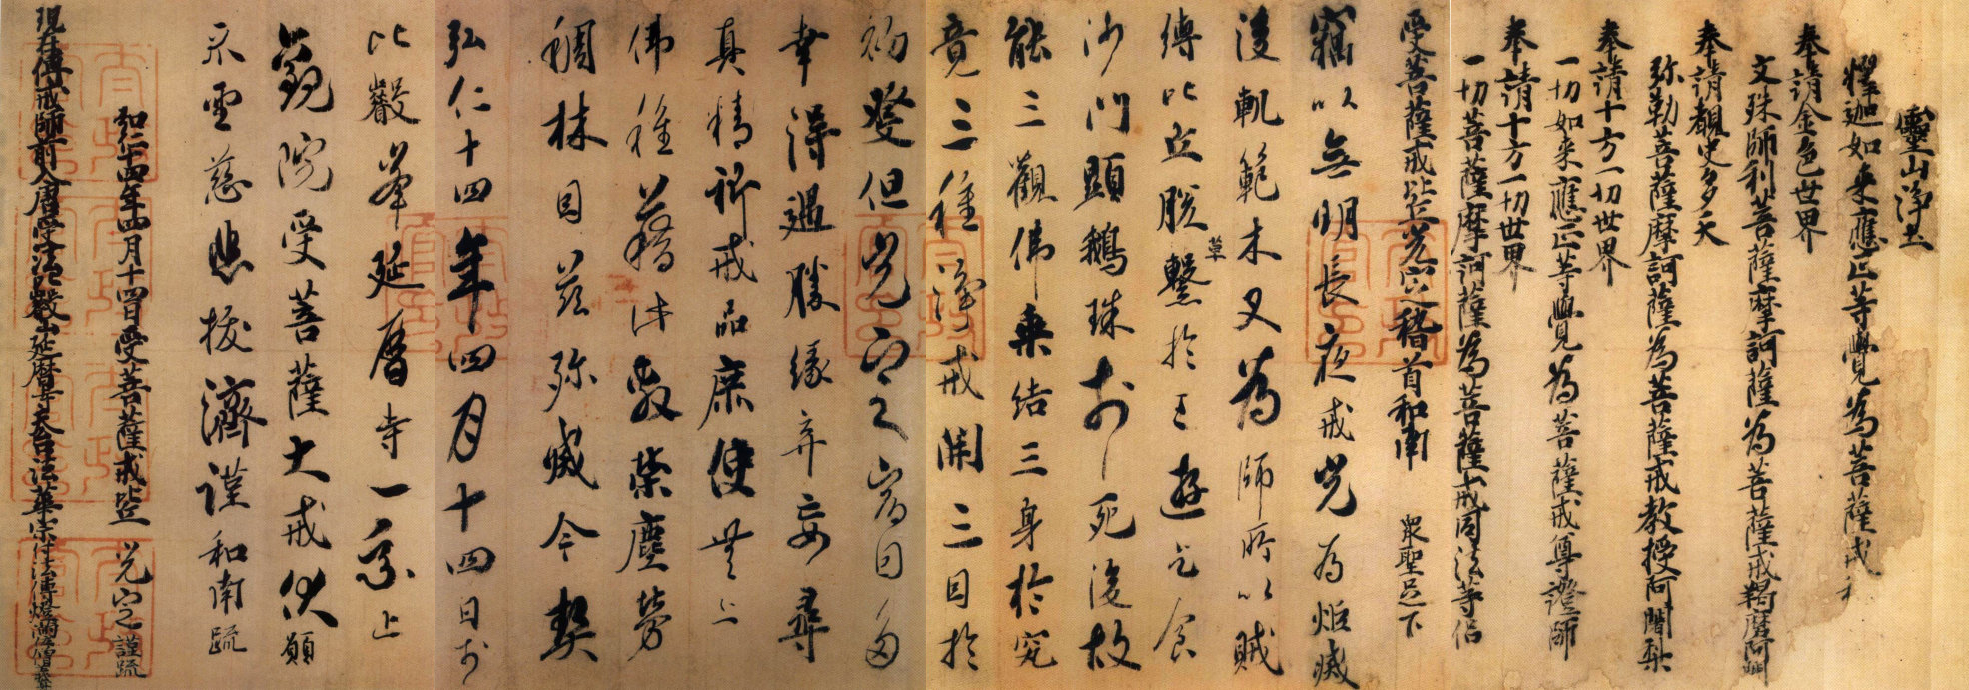 靈山淨土
釋迦如來應正等覺為菩薩戒和
奉請金色世界
文殊師利菩薩摩訶薩為菩薩戒羯磨阿闍
奉請覩史多天
弥勒菩薩摩訶薩為菩薩戒教授阿闍梨
奉請十方一切世界
一切如來應正等覺為菩薩戒尊證師
奉請十方一切世界
一切菩薩摩訶薩為菩薩戒同法等侶
受菩薩戒比丘光定稽首和南 衆聖足下
竊以無明長夜戒光為炬滅
後軌範木叉為師所以賊
縛比丘脱草繫於王遊乞食
沙門顯鵝珠於死後故
能三觀佛乗結三身於究
竟三種淨戒開三因於
初發但光定宿因多
幸得遇勝縁弃妄尋
真精祈戒品庶使無上
佛種萌牙教葉塵勞
稠林因茲弥滅今契
弘仁十四年四月十四日於
比叡峯延暦寺一乗止
觀院受菩薩大戒伏願
示聖慈悲拔濟謹和南疏
弘仁十四年四月十四日受菩薩戒比丘 光定謹疏
現在傳戒師前入唐受法沙門比叡山延暦寺天台法華宗